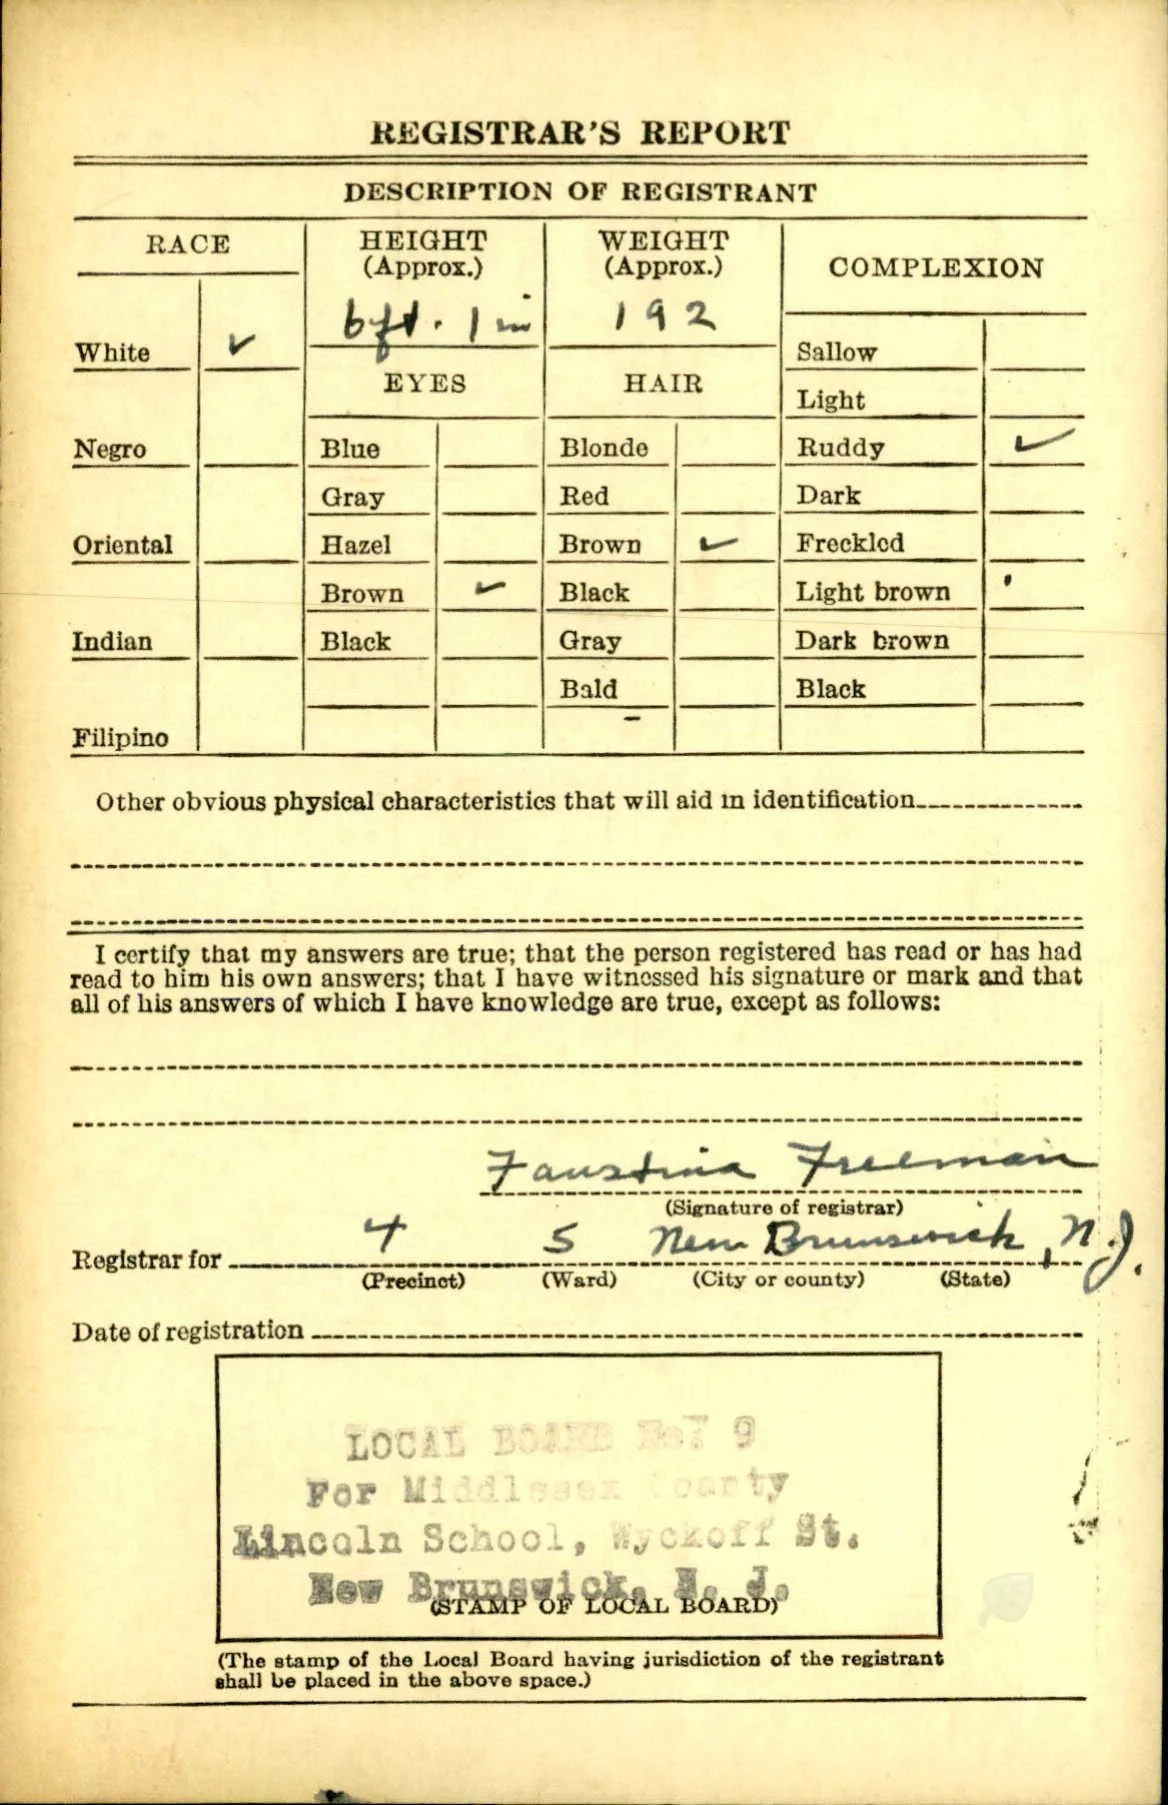 REGISTRAR'S REPORT
DESCRIPTION OF REGISTRANT
RACE
HEIGHT
(Approx.)
WEIGHT
(Approx.)
COMPLEXION
6 ft. 1 in
192
White ✓
Sallow
EYES
HAIR
Light
Negro
Blue
Blonde
Ruddy ✓
Gray
Red
Dark
Oriental
Hazel
Brown ✓
Freckled
Brown ✓
Black
Light brown
Indian
Black
Gray
Dark brown
Bald
Black
Filipino
Other obvious physical characteristics that will aid in identification
I certify that my answers are true; that the person registered has read or has had
read to him his own answers; that I have witnessed his signature or mark and that
all of his answers of which I have knowledge are true, except as follows:
Faustina Freeman
(Signature of registrar)
Registrar for 4 5 New Brunswick, N.J.
(Precinct) (Ward) (City or county) (State)
Date of registration
LOCAL BOARD 9
For Middlesex County
Lincoln School, Wyckoff St.
New Brunswick, N. J.
(STAMP OF LOCAL BOARD)
(The stamp of the Local Board having jurisdiction of the registrant
shall be placed in the above space.)